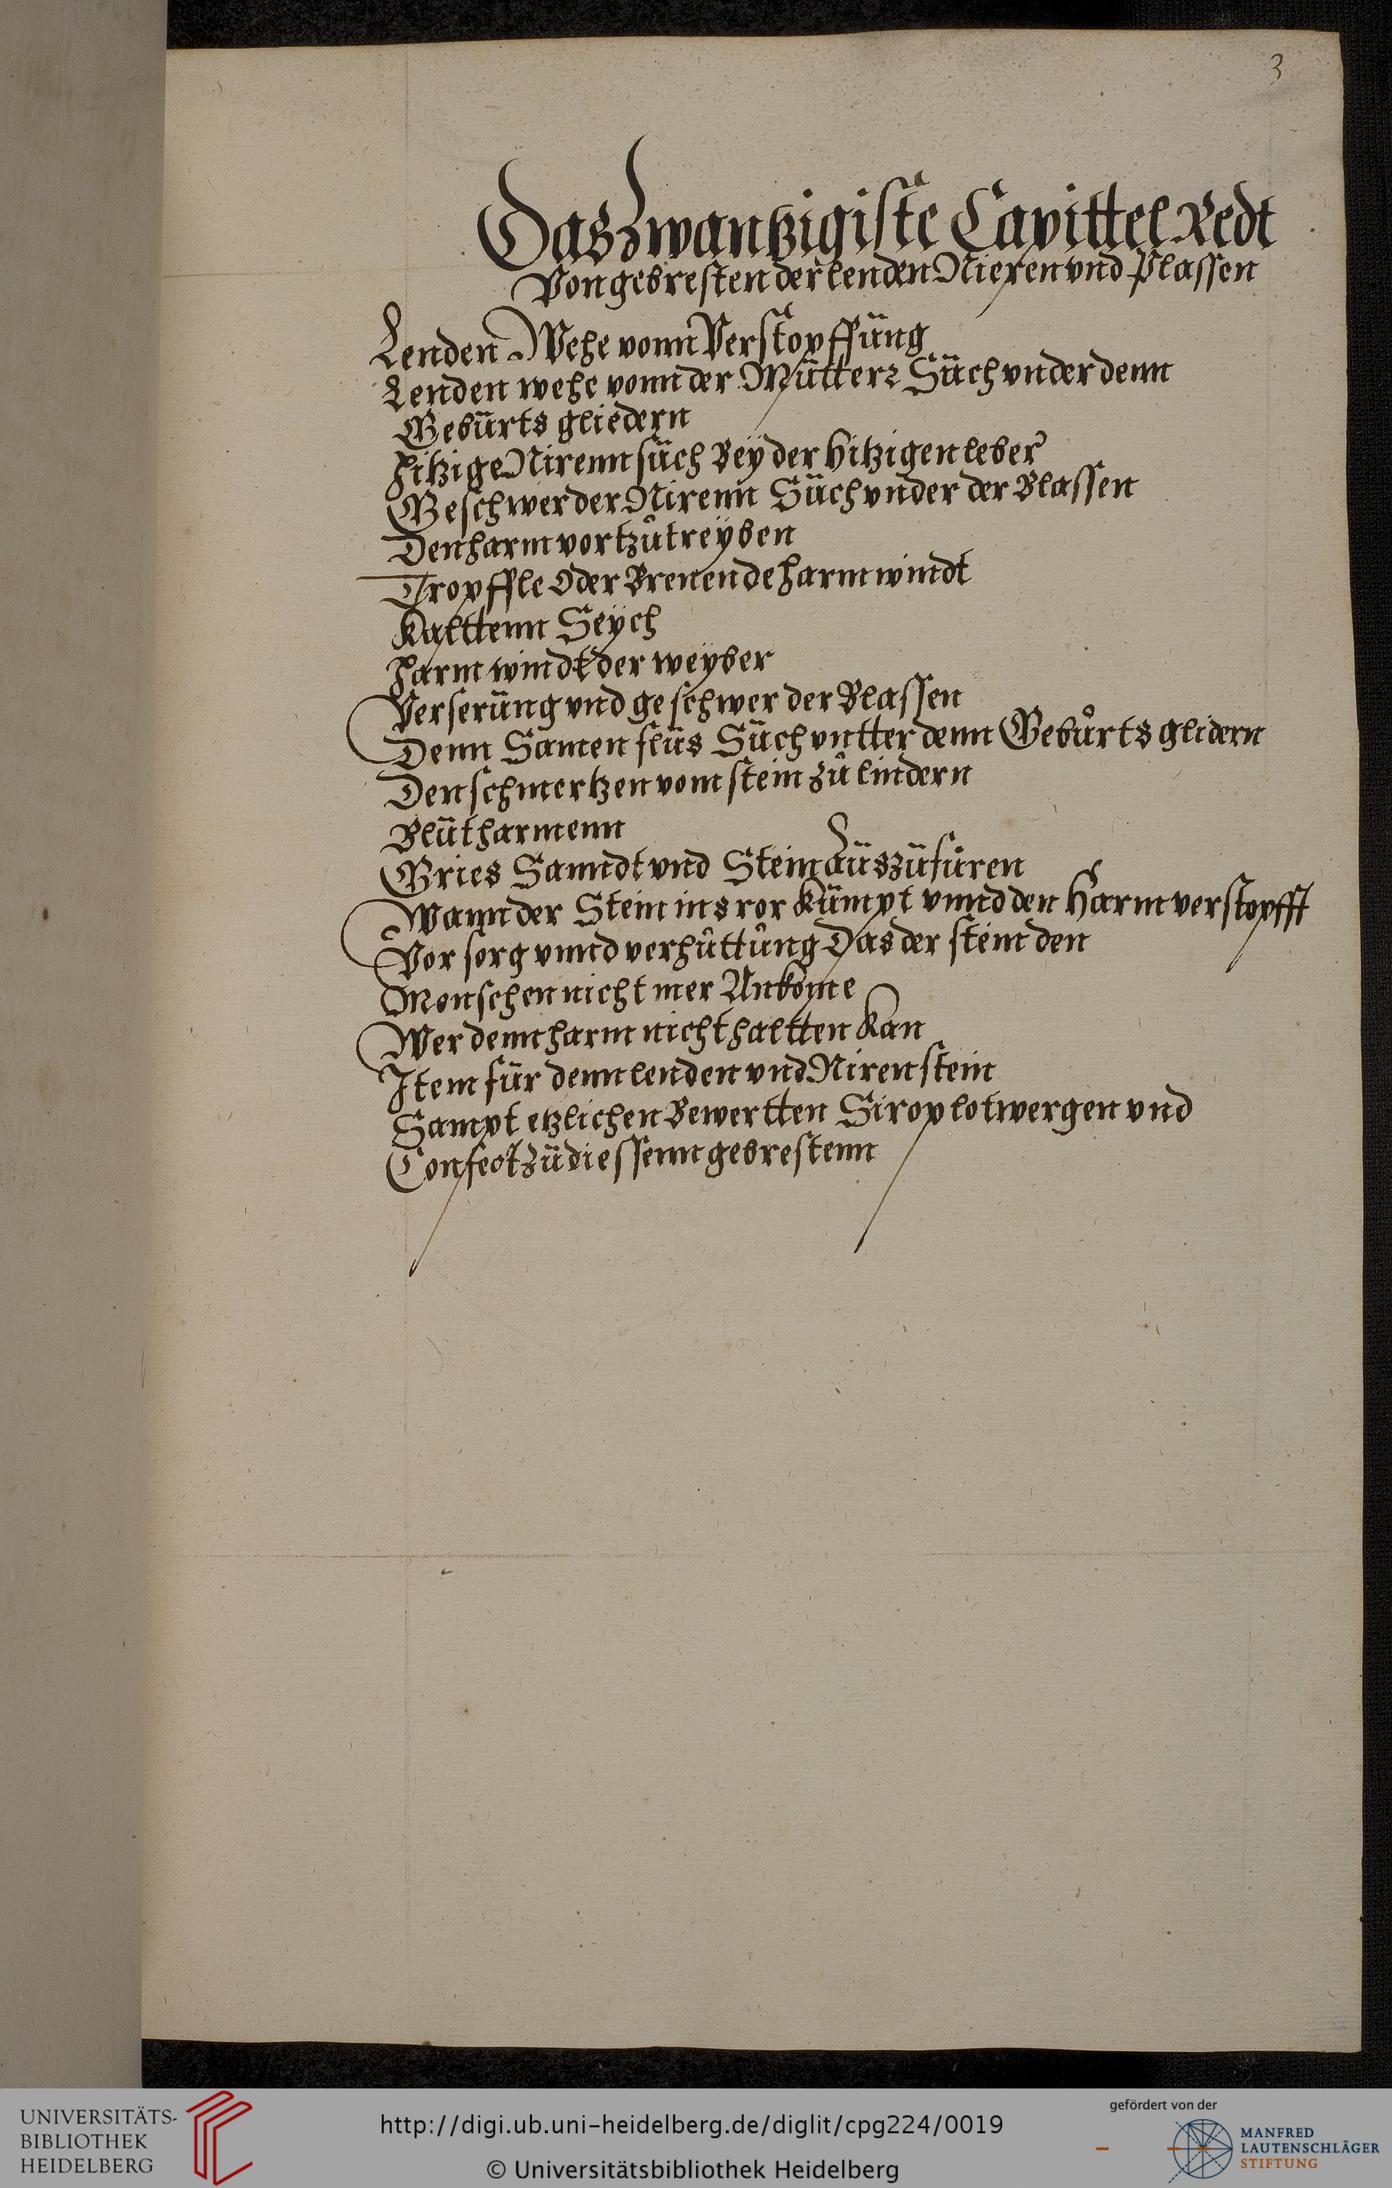 3
Das Zwantzigiste Capittel Redt
Von gebresten der lenden Nieren vnd Plassen
Lenden Wehe vonn Verstopffüng
Lenden wehe vonn der Mütterr Süch vnder denn
Gebürts gliedern
Hitzige Nirenn such Beÿ der hitzigen leber
Geschwer der Nirenn Süch vnder der Blassen
Den harm vortzůtreÿben
Tropffle Oder Brenende harmwindt
Kalttenn Seÿch
Harmwindt der weÿber
Verserüng vnd geschwer der Blassen
Denn Samen flüs Süch vntter denn Gebůrts glidern
Den schmertzen vom stein zů lindern
Blütharmenn
Gries Sanndt vnd Stein aüszüfüren
Wann der Stein ins ror kümpt vnnd den Harm verstopfft
Vor sorg vnnd verhůttůng Das der stein den
Menschen nicht mer Ankome
Wer denn harm nicht haltten Kan
Item für denn lenden vnd Niren stein
Sampt etzlichen Bewertten Sirop lotwergen vnd
Confect zü diessenn gebrestenn
UNIVERSITÄTS-
BIBLIOTHEK
HEIDELBERG
http://digi.ub.uni-heidelberg.de/diglit/cpg224/0019
© Universitätsbibliothek Heidelberg
gefördert von der
MANFRED
LAUTENSCHLÄGER
STIFTUNG